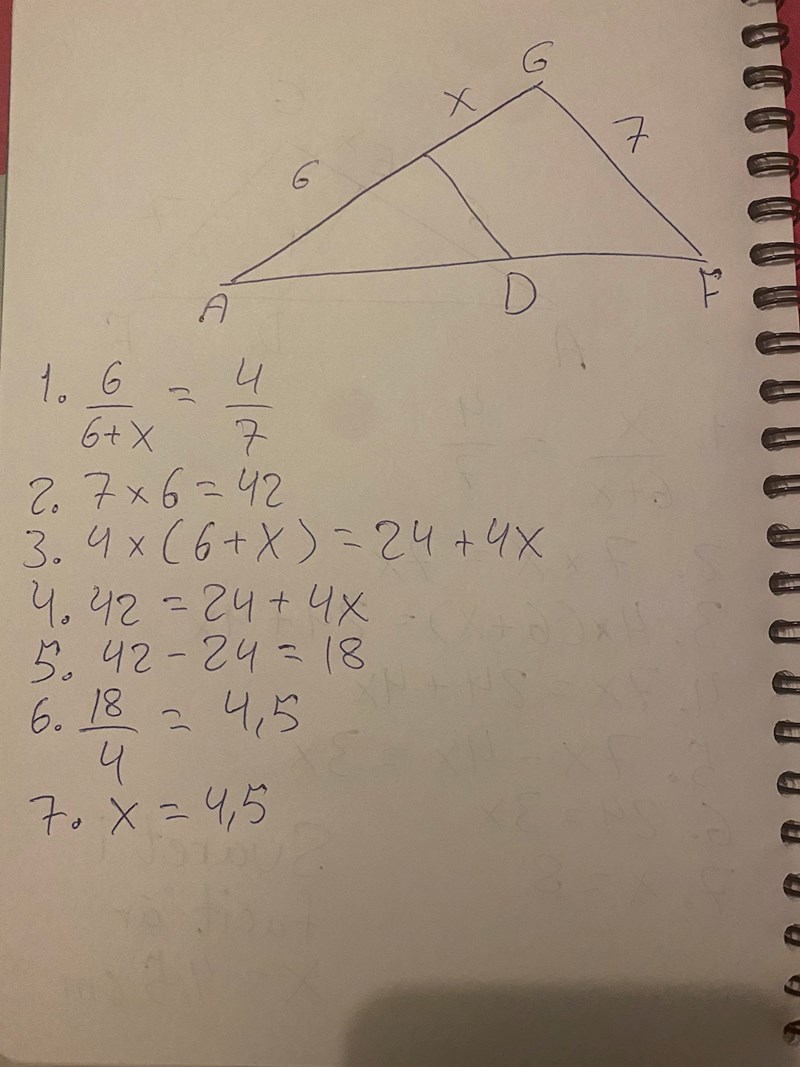 G
x
7
6
A
D
F
1. 6/(6+x) = 4/7
2. 7 x 6 = 42
3. 4 x (6 + x) = 24 + 4x
4. 42 = 24 + 4x
5. 42 - 24 = 18
6. 18/4 = 4,5
7. x = 4,5